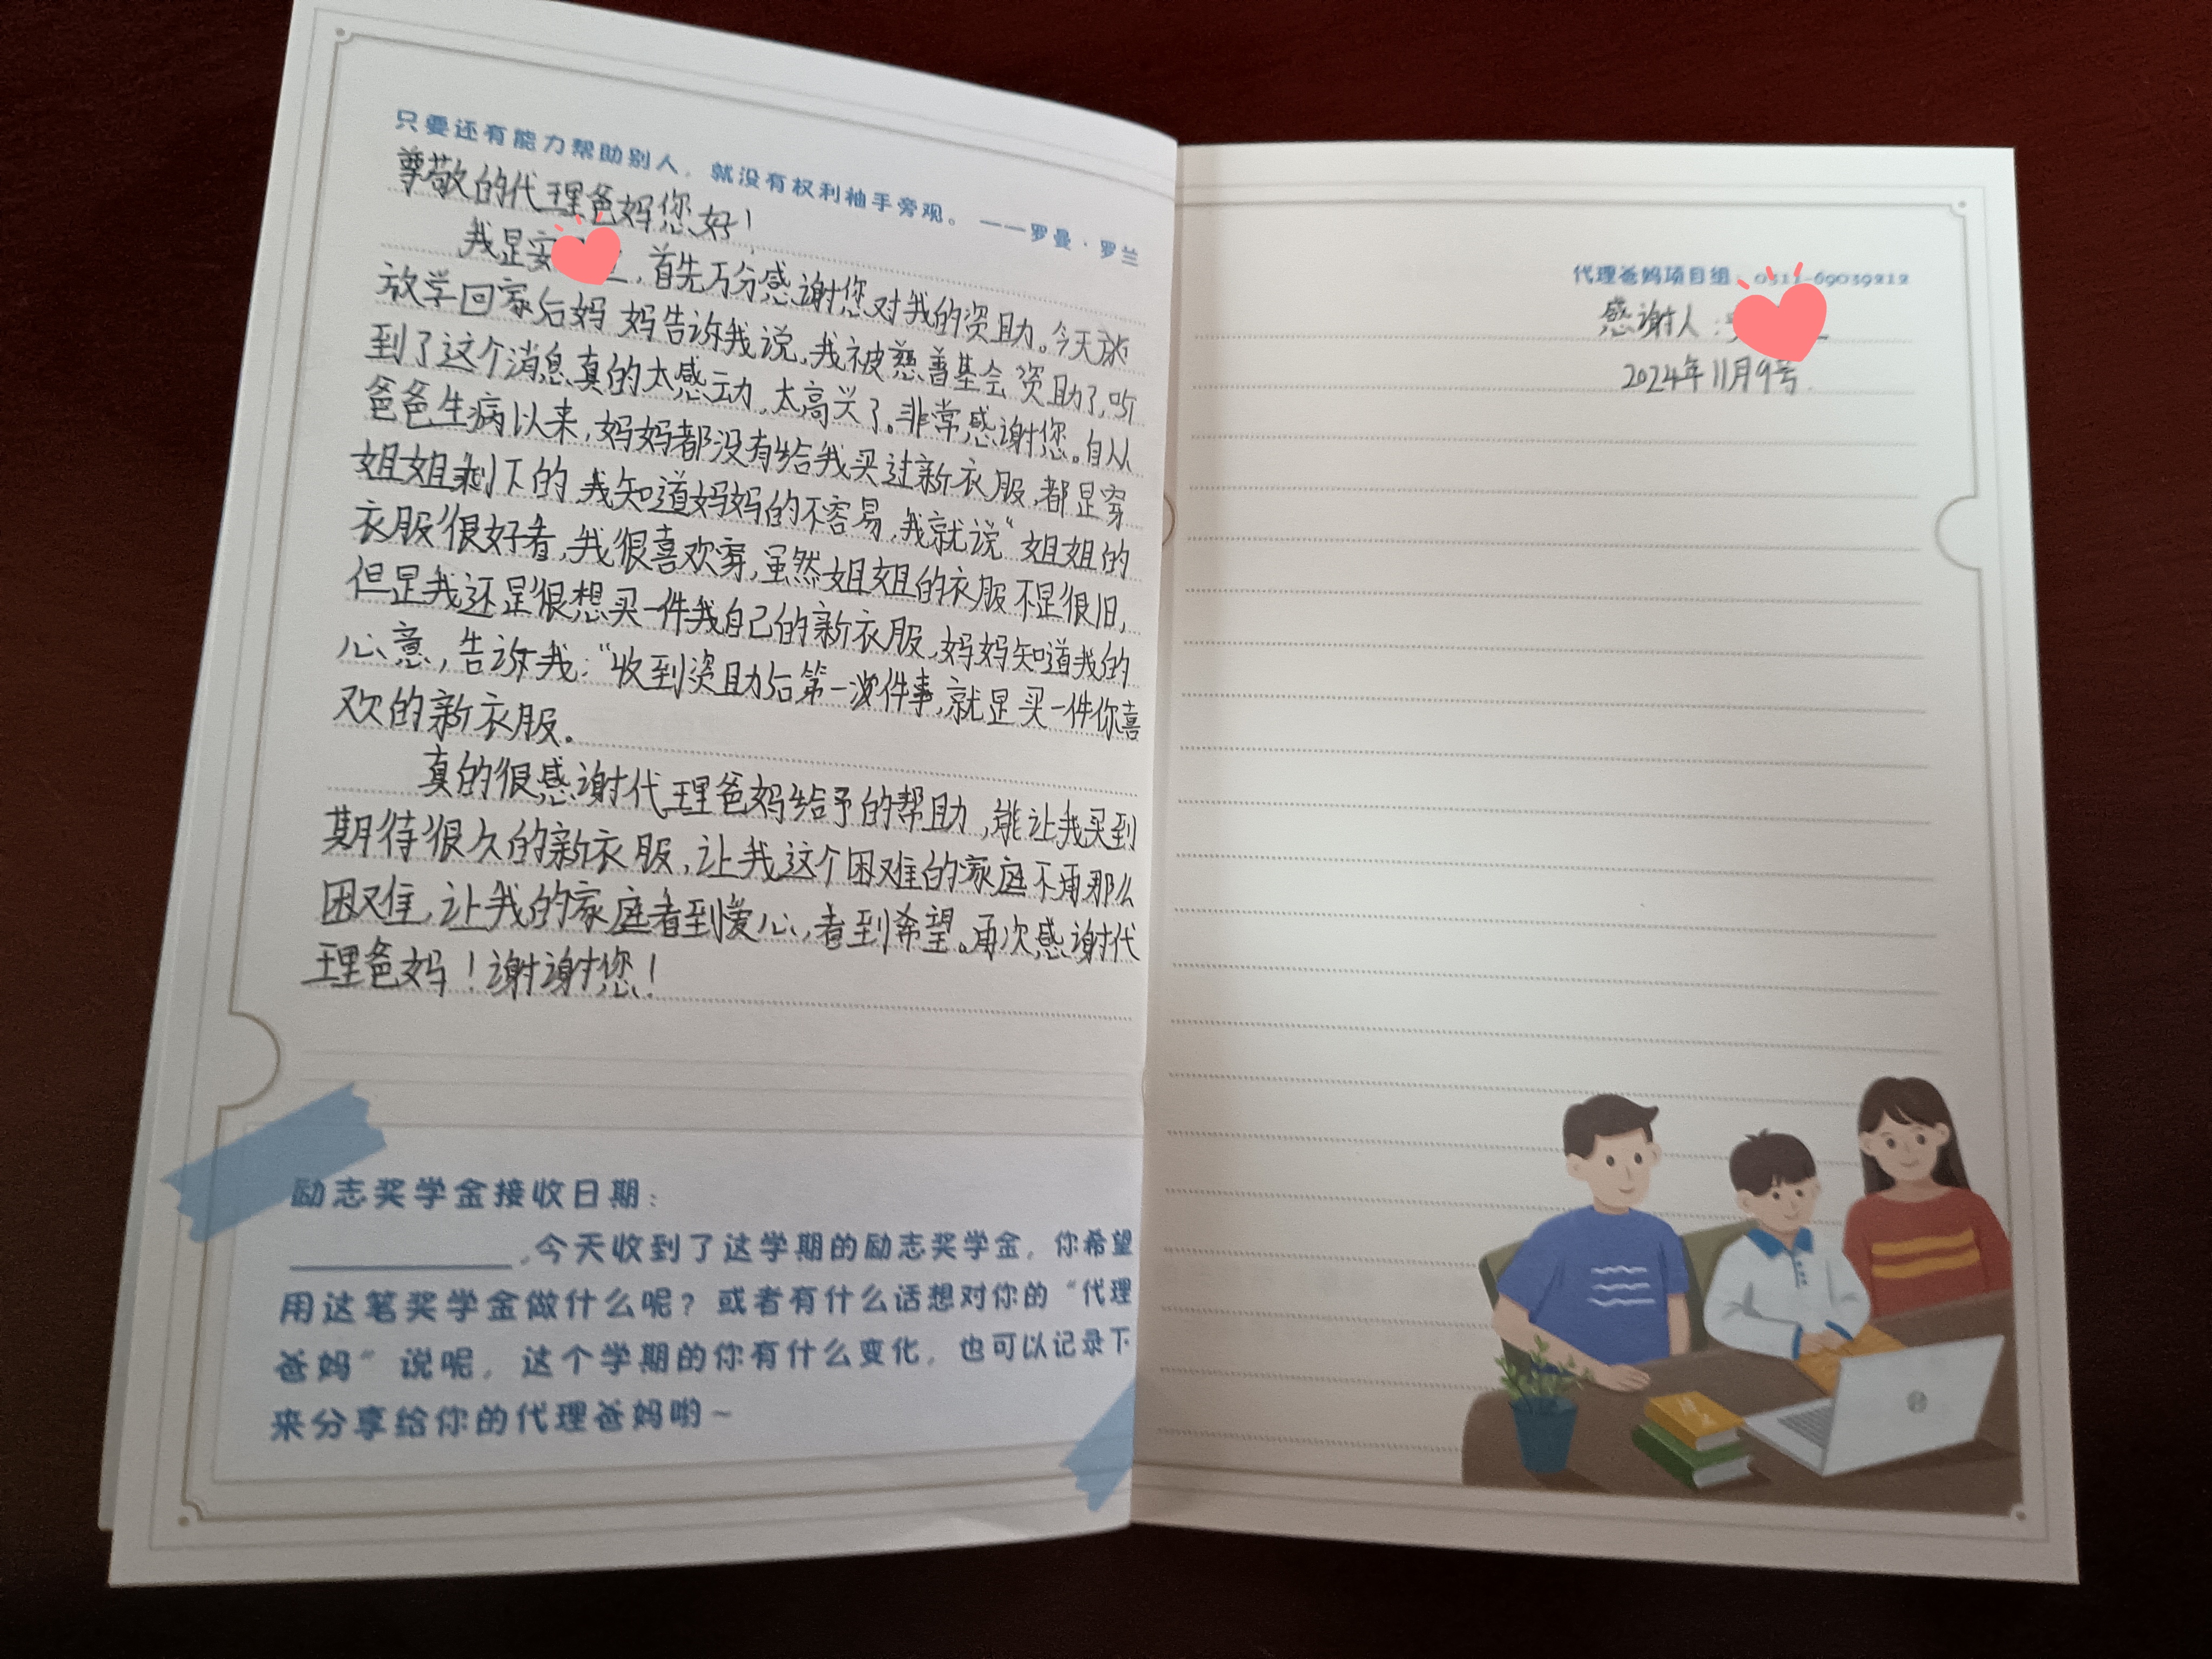 只要还有能力帮助别人，就没有权利袖手旁观。 ——罗曼·罗兰
尊敬的代理爸妈您好！
我是安，首先万分感谢您对我的资助。今天放
放学回家后妈妈告诉我说，我被慈善基会资助了，听
到了这个消息真的太感动，太高兴了。非常感谢您。自从
爸爸生病以来，妈妈都没有给我买过新衣服，都是穿
姐姐剩下的，我知道妈妈的不容易，我就说“姐姐的
衣服很好看，我很喜欢穿，虽然姐姐的衣服不是很旧，
但是我还是很想买一件我自己的新衣服，妈妈知道我的
心意，告诉我：“收到资助后第一件事，就是买一件你喜
欢的新衣服。
真的很感谢代理爸妈给予的帮助，能让我买到
期待很久的新衣服，让我这个困难的家庭不再那么
困难，让我的家庭看到爱心，看到希望。再次感谢代
理爸妈！谢谢您！
励志奖学金接收日期：
，今天收到了这学期的励志奖学金，你希望
用这笔奖学金做什么呢？或者有什么话想对你的“代理
爸妈”说呢，这个学期的你有什么变化，也可以记录下
来分享给你的代理爸妈哟~
代理爸妈项目组：0311-69039212
感谢人：
2024年11月9号